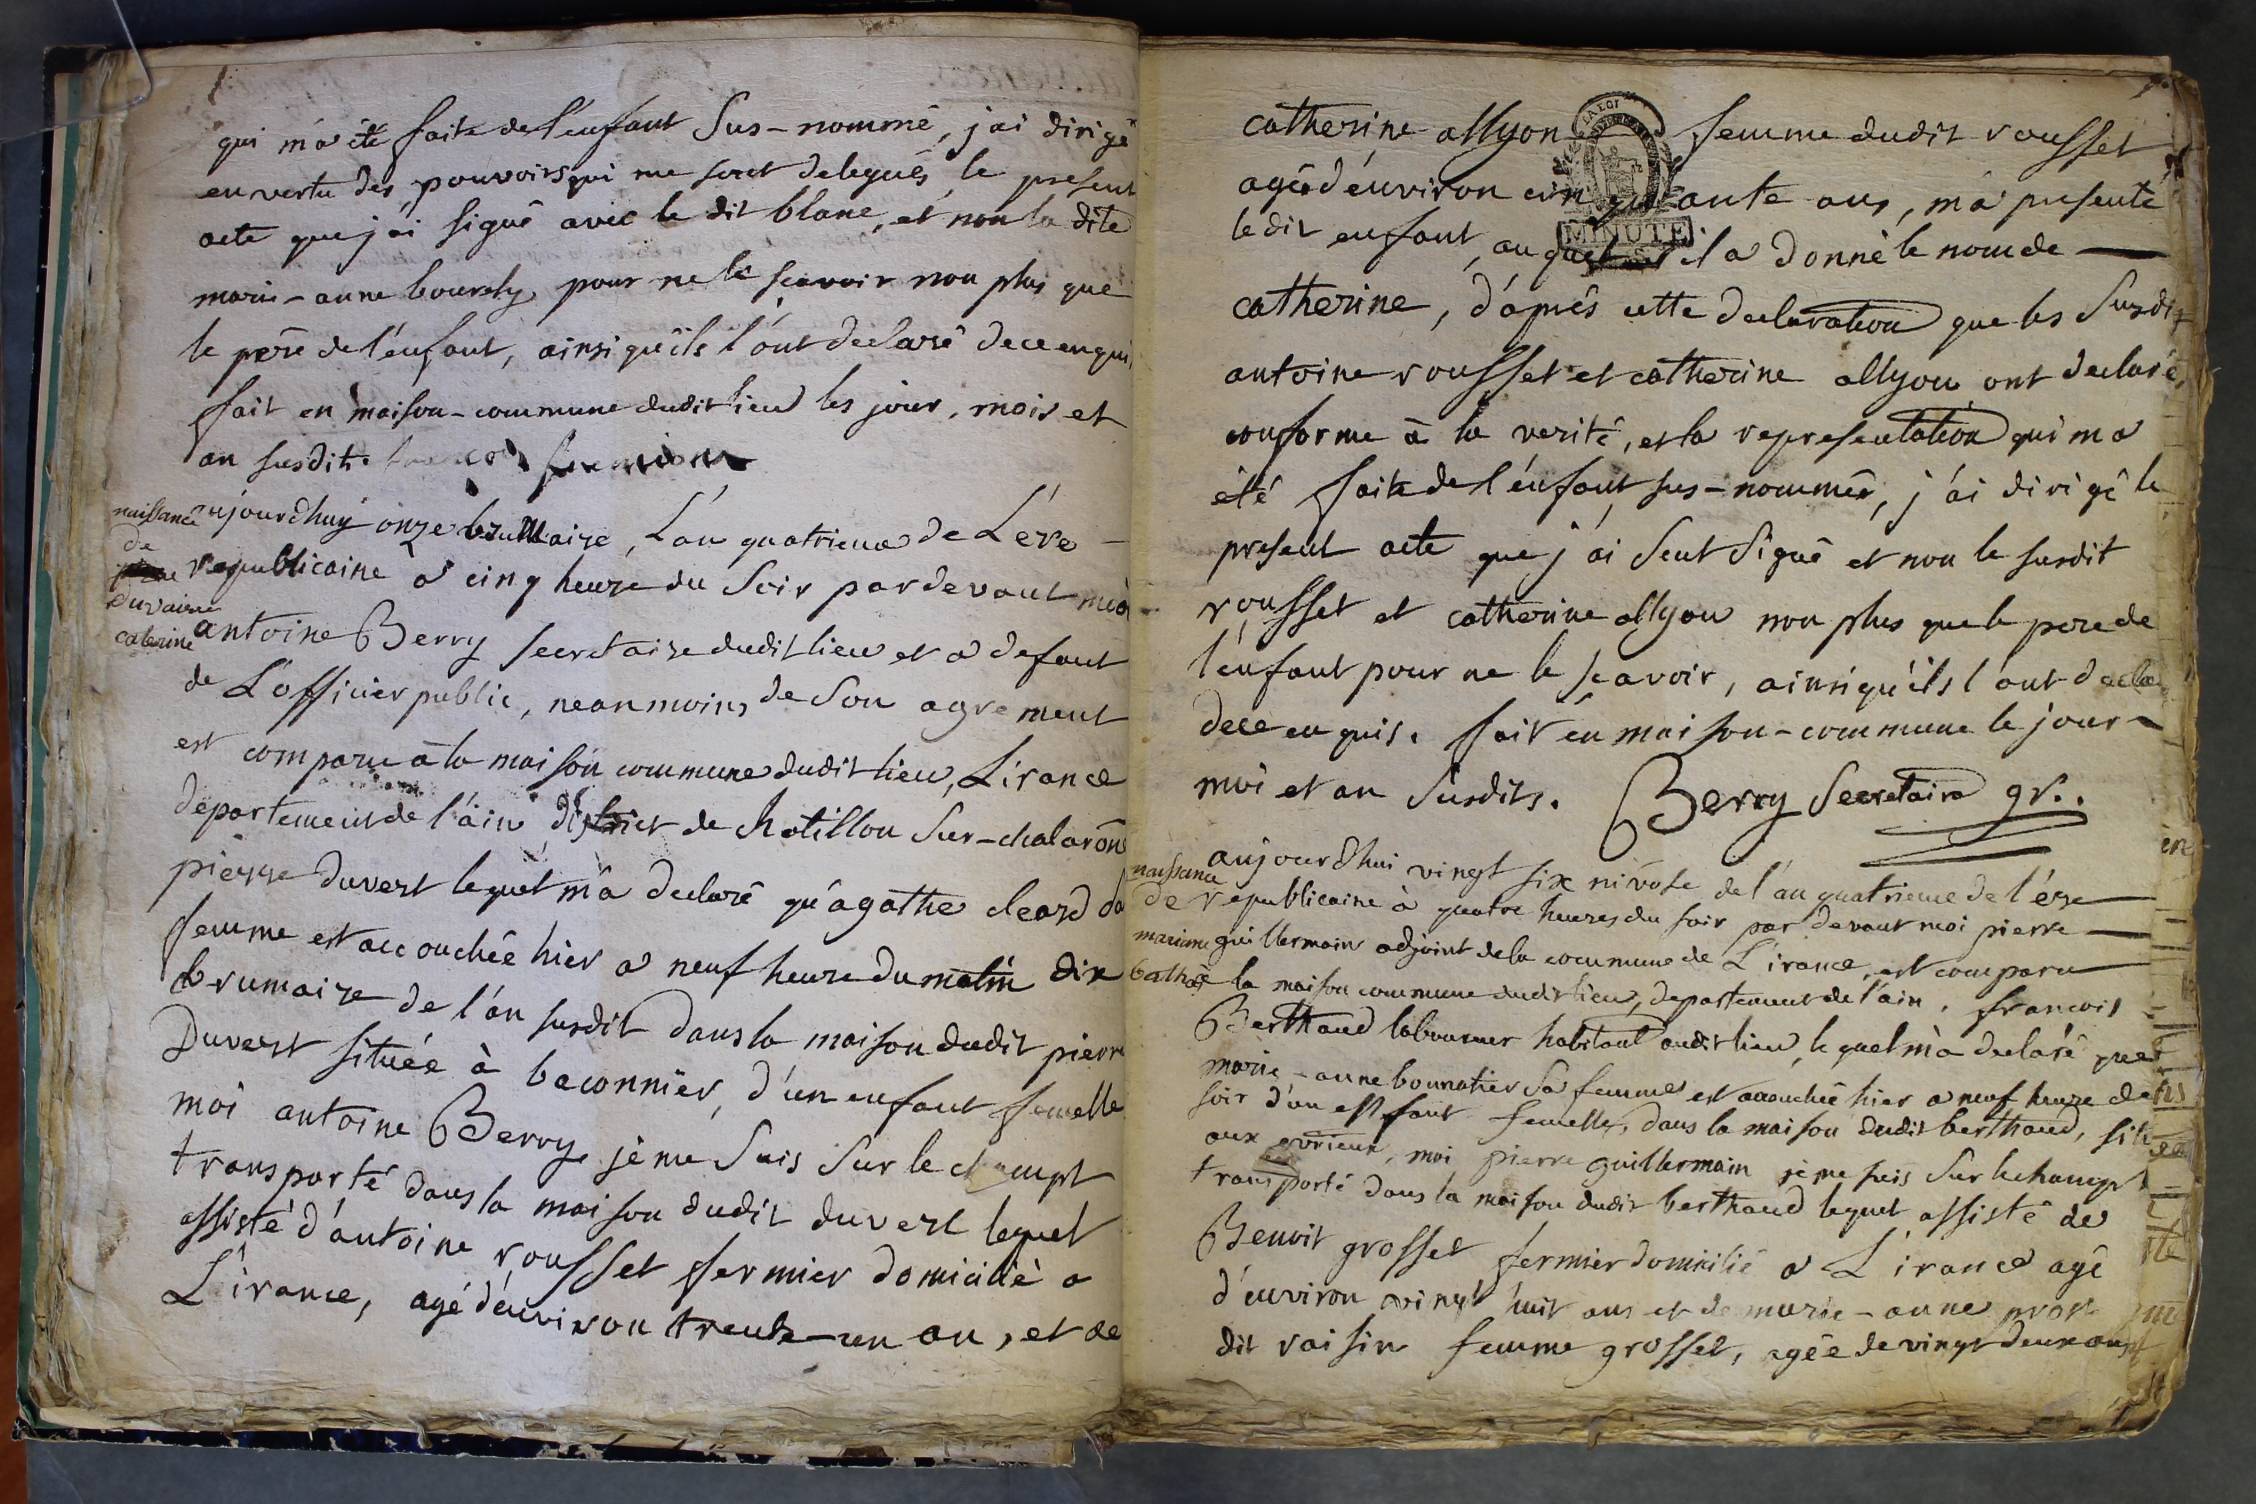 qui m'a été faite de l'enfant Sus-nommé, j'ai dirigé
en vertu des pouvoirs qui me sont delegués le present
acte que j'ai signé avec le dit blanc, et non la dite
marie-anne bourdy pour ne le scavoir non plus que
le père de l'enfant, ainsi qu'ils l'ont declaré de ce enqui,
fait en maison-commune dudit lieu les jour, mois et
an susdit.
naissance
de
duvaire
caterine
aujourdhuy onze brumaire, L'an quatrieme de L'ère -
republicaine a cinq heure du Soir pardevant moi
antoine Berry secretaire dudit lieu et a defaut
de L'officier public, neanmoins de Son agrement
est comparu à la maison commune dudit lieu, Lirance
departement de l'ain, district de chatillon Sur-chalarône
pierre duvert lequel m'a declaré qu'agathe cleard sa
femme est accouchée hier a neuf heure du matin dix
brumaire de l'an susdit dans la maison dudit pierre
Duvert située à baconnier, d'un enfant femelle
moi antoine Berry je me Suis Sur le champt
transporté dans la maison dudit duvert lequel
assisté d'antoine rousset fermier domicilié a
L'irance, agé d'environ trente-un an, et de
catherine allyon femme dudit rousset
LA LOI
MINUTE
agée d'environ cinquante ans, m'a presenté
le dit enfant, auquel il a donné le nom de —
catherine, d'après cette declaration que les Susdits
antoine rousset et catherine allyon ont declaré
conforme à la verité, et la representation qui m'a
été faite de l'enfant sus-nommée, j'ai dirigé le
present acte que j'ai Seul Signé et non le susdit
rousset et catherine allyon non plus que le pere de
l'enfant pour ne le scavoir, ainsi qu'ils l'ont
de ce enquis. fait en maison-commune le jour -
moi et an susdits. Berry Secretaire gr.
naissance
de
marianne
aujourdhui vingt six nivose de l'an quatrieme de l'ére
republicaine à quatre heures du soir par devant moi pierre —
guillermain adjoint de la commune de L'irance, est comparu
à la maison commune dudit lieu, departement de l'ain. francois
Berthaud laboureur habitant audit lieu, lequel m'a declaré que
marie-anne bounatier Sa femme est accouchée hier a neuf heure de
soir d'un enfant femelle, dans la maison dudit berthaud, située
aux evrieux, moi pierre guillermain je me suis Sur le champt
transporté dans la maison dudit berthaud lequel assisté de
Benoit grosset fermier domicilié a L'irance agé
d'environ vingt huit ans et de marie-anne
dit raisin femme grosset, agée de vingt deux ans